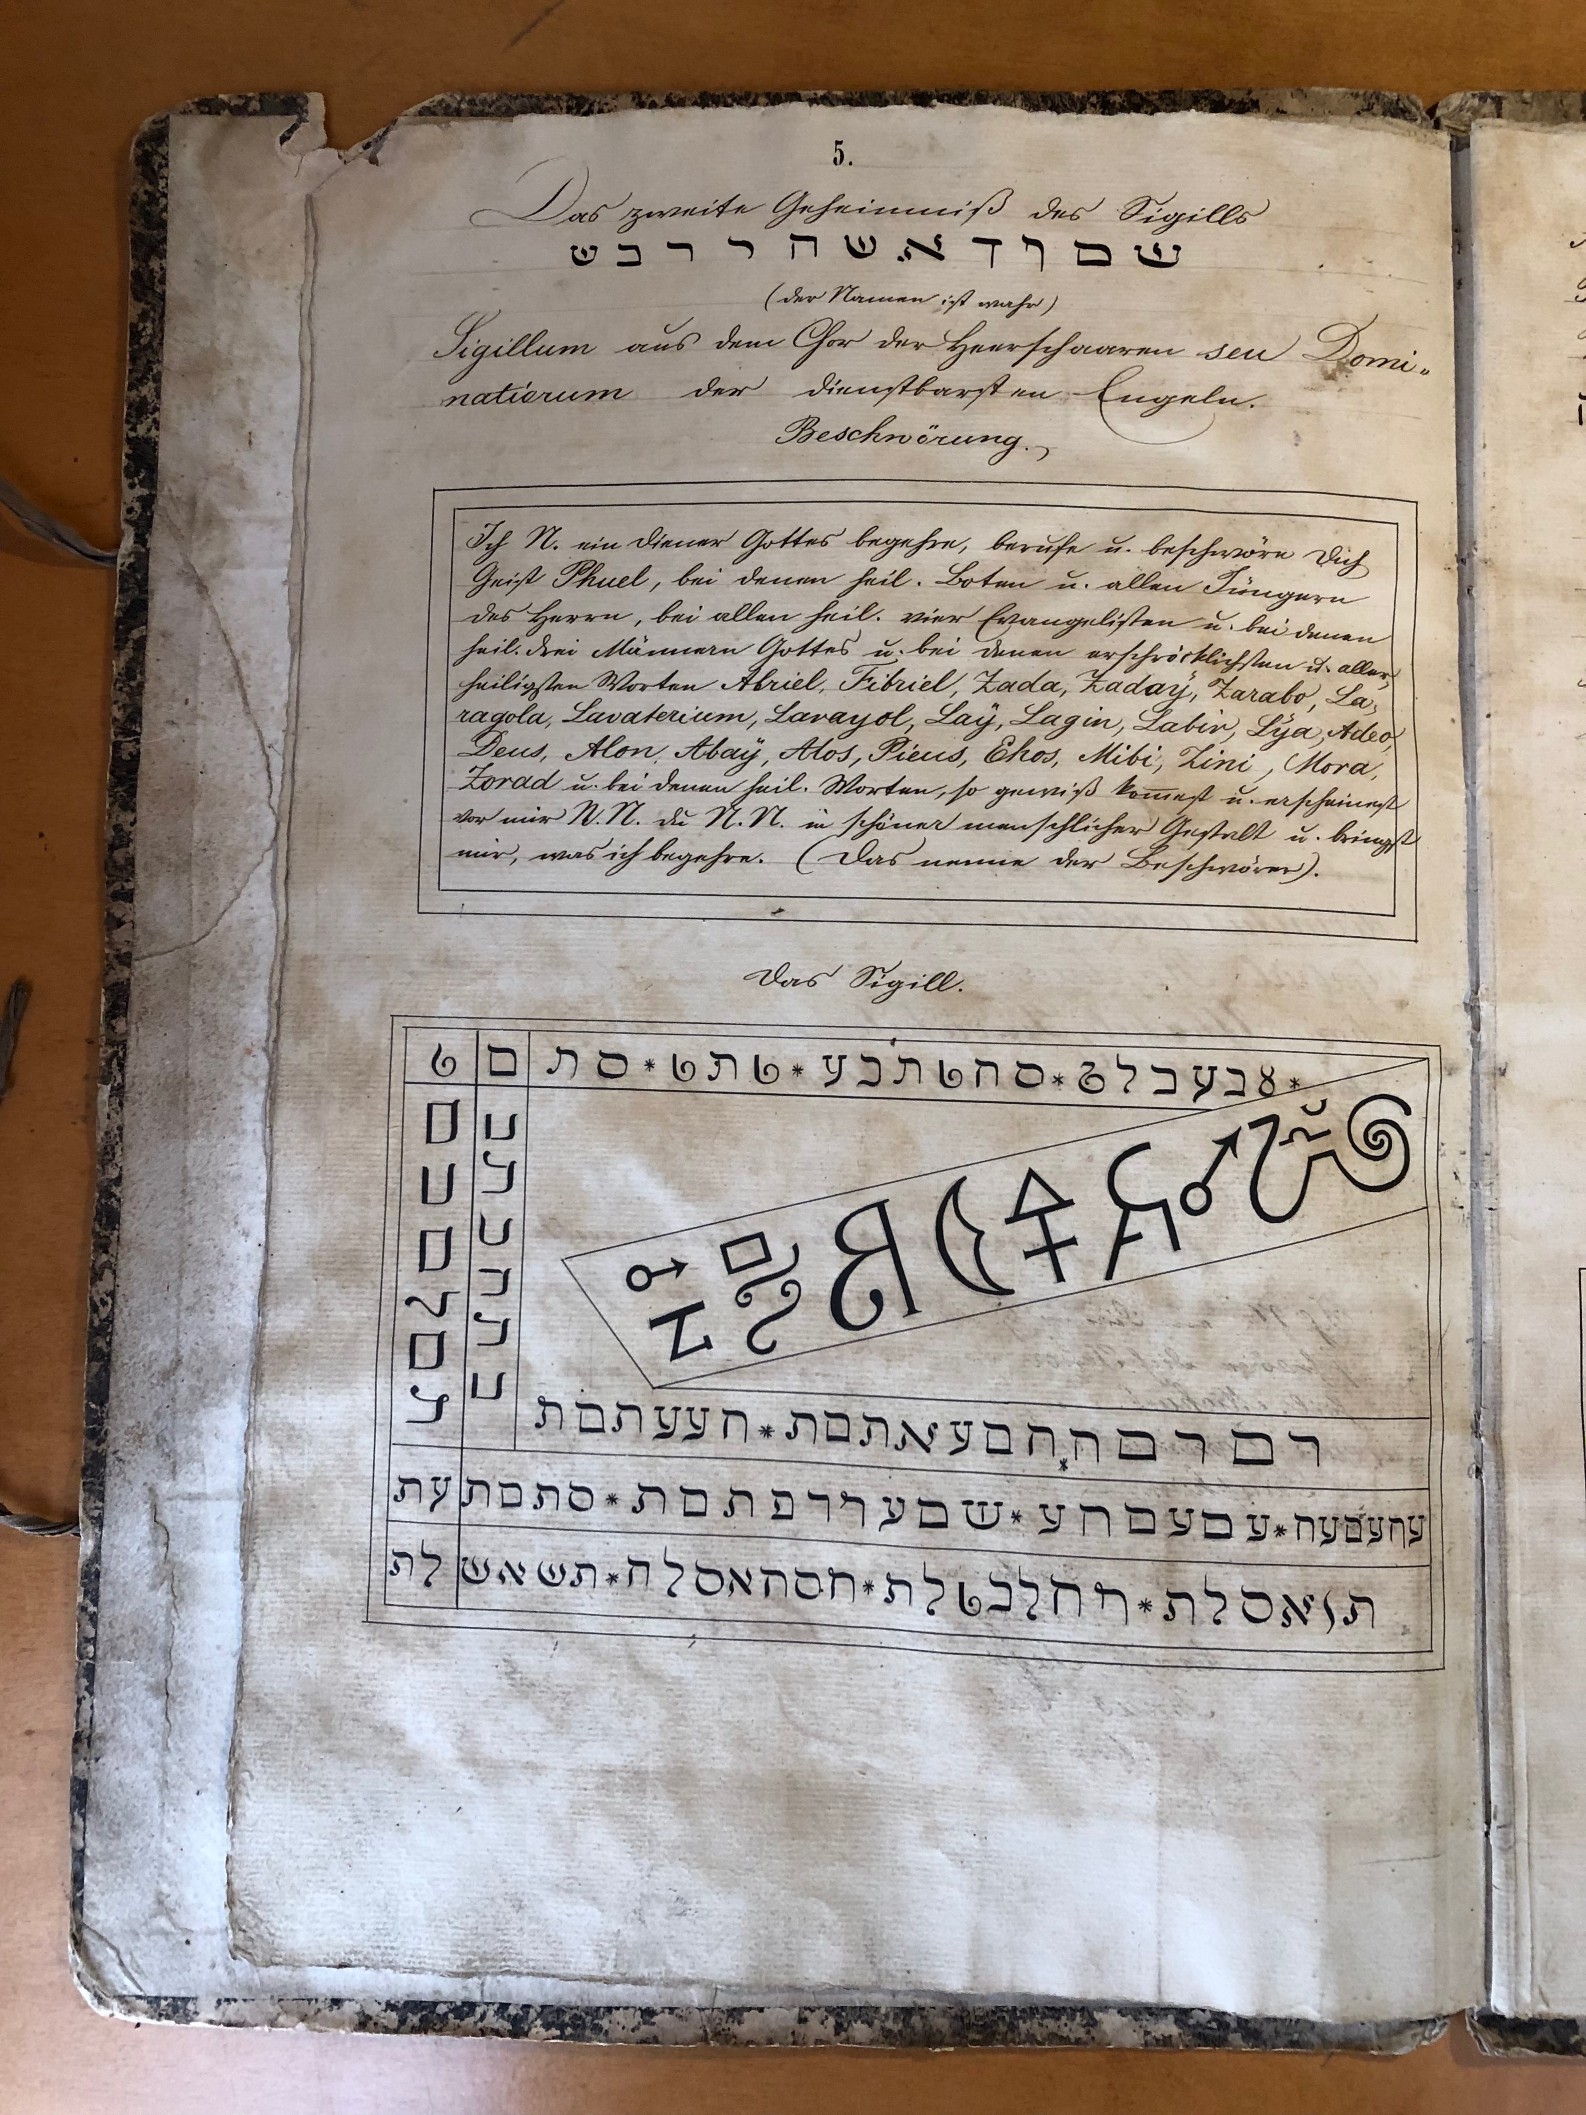 5.
Das zweite Geheimniß des Sigills
שםוךא.שהררבש
(der Namen ist wahr)
Sigillum aus dem Chor der Heerschaaren seu Domi-
natiorum der dienstbarsten Engeln.
Beschwörung.
Ich N. ein Diener Gottes begehre, berufe u. beschwöre Dich
Geist Phuel, bei denen heil. Boten u. allen Jüngern
des Herrn, bei allen heil. vier Evangelisten u. bei denen
heil. drei Männern Gottes u. bei denen erschröcklichsten u. aller,
heiligsten Worten Abriel, Fibriel, Zada, Zadaÿ, Zarabo, La,
ragola, Lavaterium, Larayol, Laÿ, Lagin, Labir, Lÿa, Adeo,
Deus, Alon, Abaÿ, Alos, Pieus, Ehos, Mibi, Zini, Mora,
Zorad u. bei denen heil. Worten, so gewiß kommest u. erscheinest
vor mir N.N. du N.N. in schöner menschlicher Gestalt u. bringst
mir, was ich begehre. (Das nenne der Beschwörer).
Das Sigill.
רםרםה.חםעאתםת*חעעתםת
עחעםעח*עםעםחע*שםערדפתםת*סתםתעת
תואסלת*רחלכטלת*חםהאסלח*תשאשלת